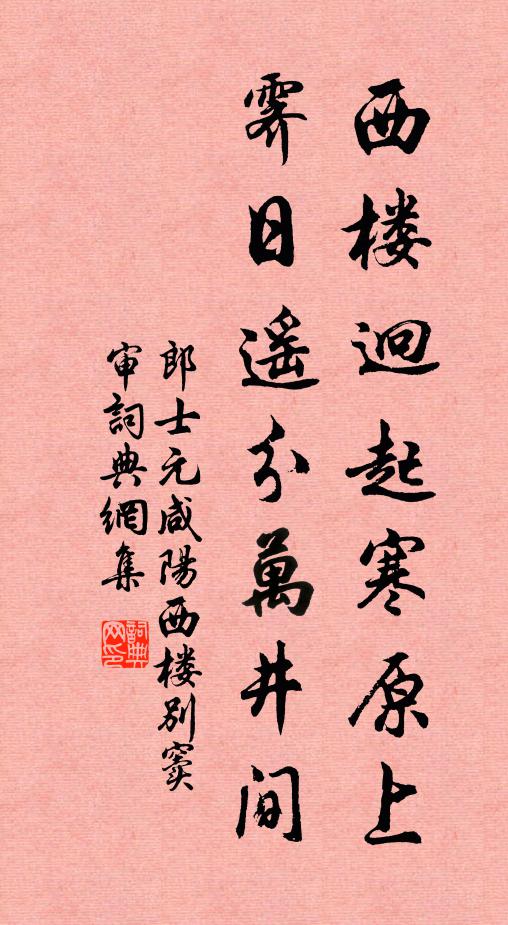 西楼迥起寒原上
霁日遥分萬井间
郎士元咸陽西楼别窦
审詞典網集
詞典
网印